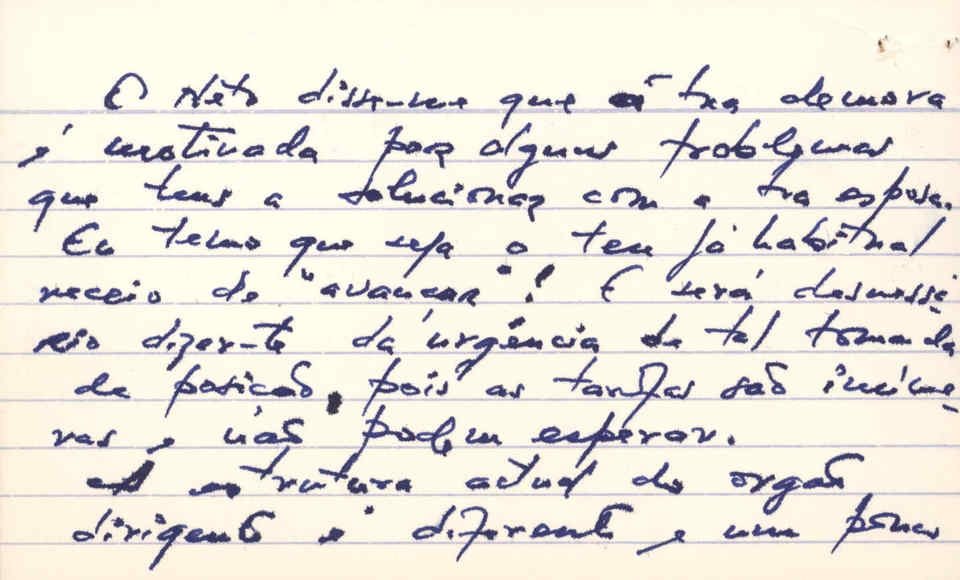 O Néto disse-me que a tua demora
é motivada por alguns problemas
que tens a solucionar com a tua esposa.
Eu temo que seja o teu já habitual
receio de "avançar"! E será desnessé-
rio dizer-te da urgência de tal tomada
de posição, pois as tarefas são inúme-
ras e não podem esperar.
A estrutura actual do orgão
dirigente é diferente e um pouco